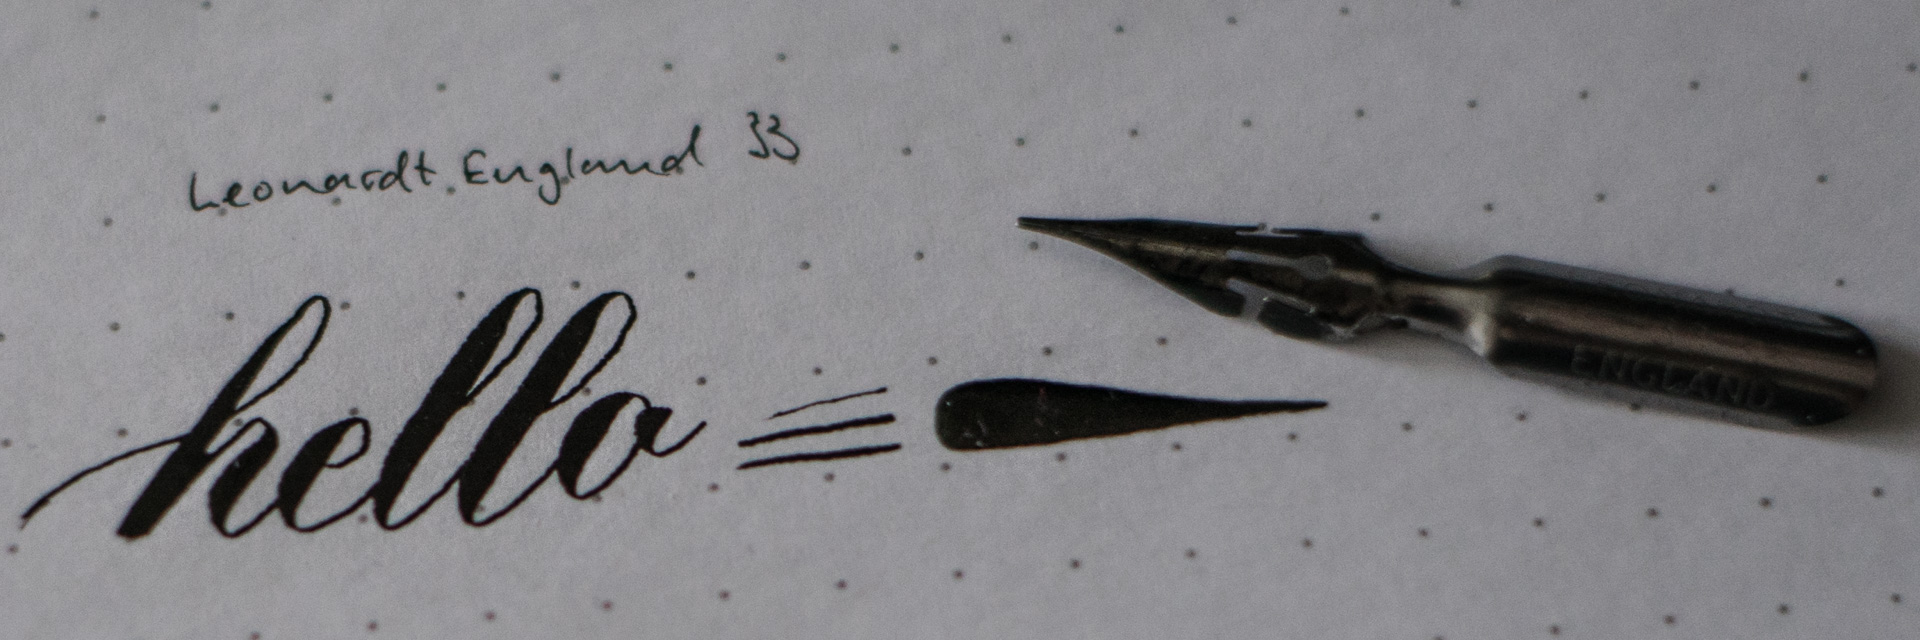 Leonardt England 33
hello
ENGLAND